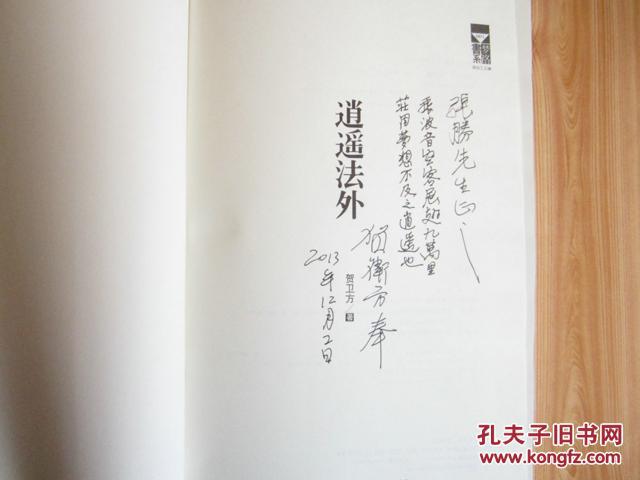 張勝先生正之
乘波音空客展翅九萬里
莊周夢想不及之逍遥也
賀衛方奉
2013年12月2日
逍遥法外
贺卫方 著
書系
孔夫子旧书网
www.kongfz.com